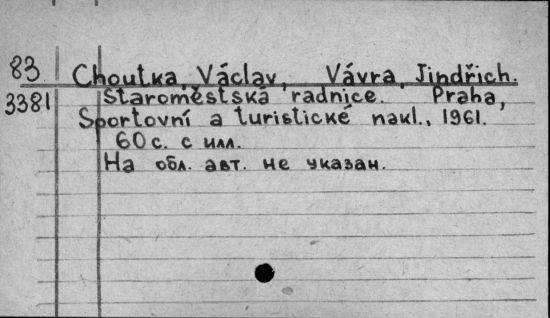 83 Choutka, Václav, Vávra, Jindřich.
3381 Staroměstská radnice. Praha,
Sportovní a turistické nakl., 1961.
60 с. с илл.
На обл. авт. не указан.